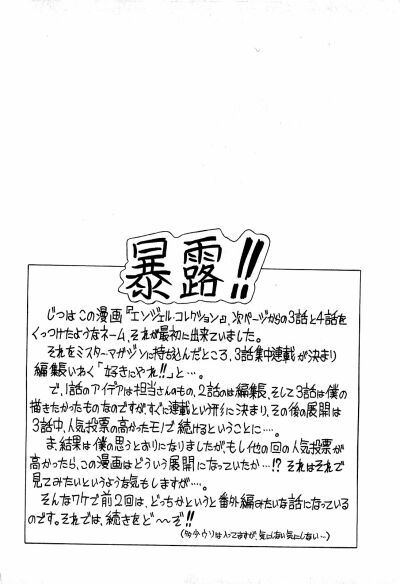 暴露!!
じつはこの漫画『エンジェル・コレクション』、次ページからの3話と4話を
くっつけたようなネーム、それが最初に出来ていました。
それをミスターマガジンに持ち込んだところ、3話集中連載が決まり
編集長いわく「好きにやれ!!」と…。
で、1話のアイデアは担当さんのもの、2話のは編集長、そして3話は僕の
描きたかったものなのですが、すぐに連載という形に決まり、その後の展開は
3話中、人気投票の高かったモノで続けるということに…。
ま、結果は僕の思うとおりになりましたが、もし他の回の人気投票が
高かったら、この漫画はどういう展開になっていたか…!? それはそれで
見てみたいというような気もしますが…。
そんなワケで前2回は、どっちかというと番外編みたいな話になっている
のです。それでは、続きをど〜ぞ!!
気にしない気にしない…)